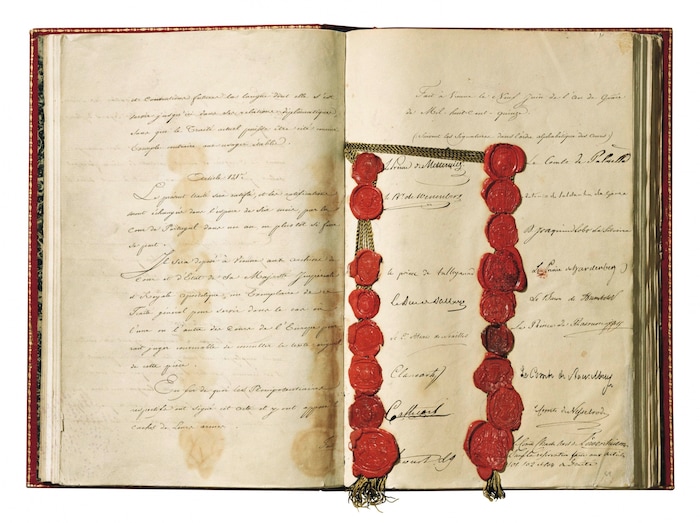 et continuera faire la langue dont elle s'est
servie jusqu'ici dans ses relations diplomatiques,
sans que le Traité actuel puisse être cité comme
exemple contraire aux usages établis.
Article 121.
Le présent traité sera ratifié, et les ratifications
seront échangées dans l'espace de six mois, par la
Cour de Portugal dans un an ou plus tôt si faire
se peut.
Il sera déposé à Vienne aux archives de
Cour et d'Etat de Sa Majesté Impériale
et Royale Apostolique, un Exemplaire de ce
Traité général pour servir dans le cas où
l'une ou l'autre des Cours de l'Europe pour-
rait juger convenable de consulter le texte original
de cette pièce.
En foi de quoi les Plénipotentiaires
respectifs ont signé cet acte et y ont apposé
cachet de leurs armes.
Fait à Vienne le Neuf Juin de l'an de Grâce
de Mil huit cent quinze.
(Suivent les Signatures dans l'ordre alphabétique des Cours)
Le Prince de Metternich
le Bn de Wessenberg
le prince de Talleyrand
Le Duc de Dalberg
le Cte Alexis de Noailles
Clancarty
Cathcart
Stewart LG
Le Comte de Palmella
Antonio de Saldanha da Gama
D Joaquim Lobo da Silveira
Le Prince de Hardenberg
Le Baron de Humboldt
Le Prince de Rasoumoffsky
Le Comte de Stackelberg
Comte de Nesselrode
Le Comte Charles Axel de Löwenhielm